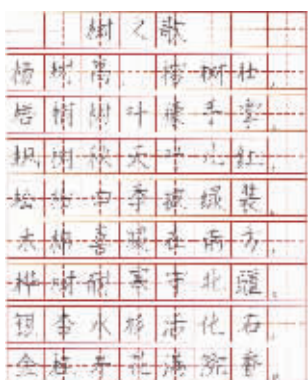 树之歌
杨树高，榕树壮，
梧桐树叶像手掌。
枫树秋天叶儿红，
松柏四季披绿装。
木棉喜暖在南方，
桦树耐寒守北疆。
银杏水杉活化石，
金桂开花满院香。